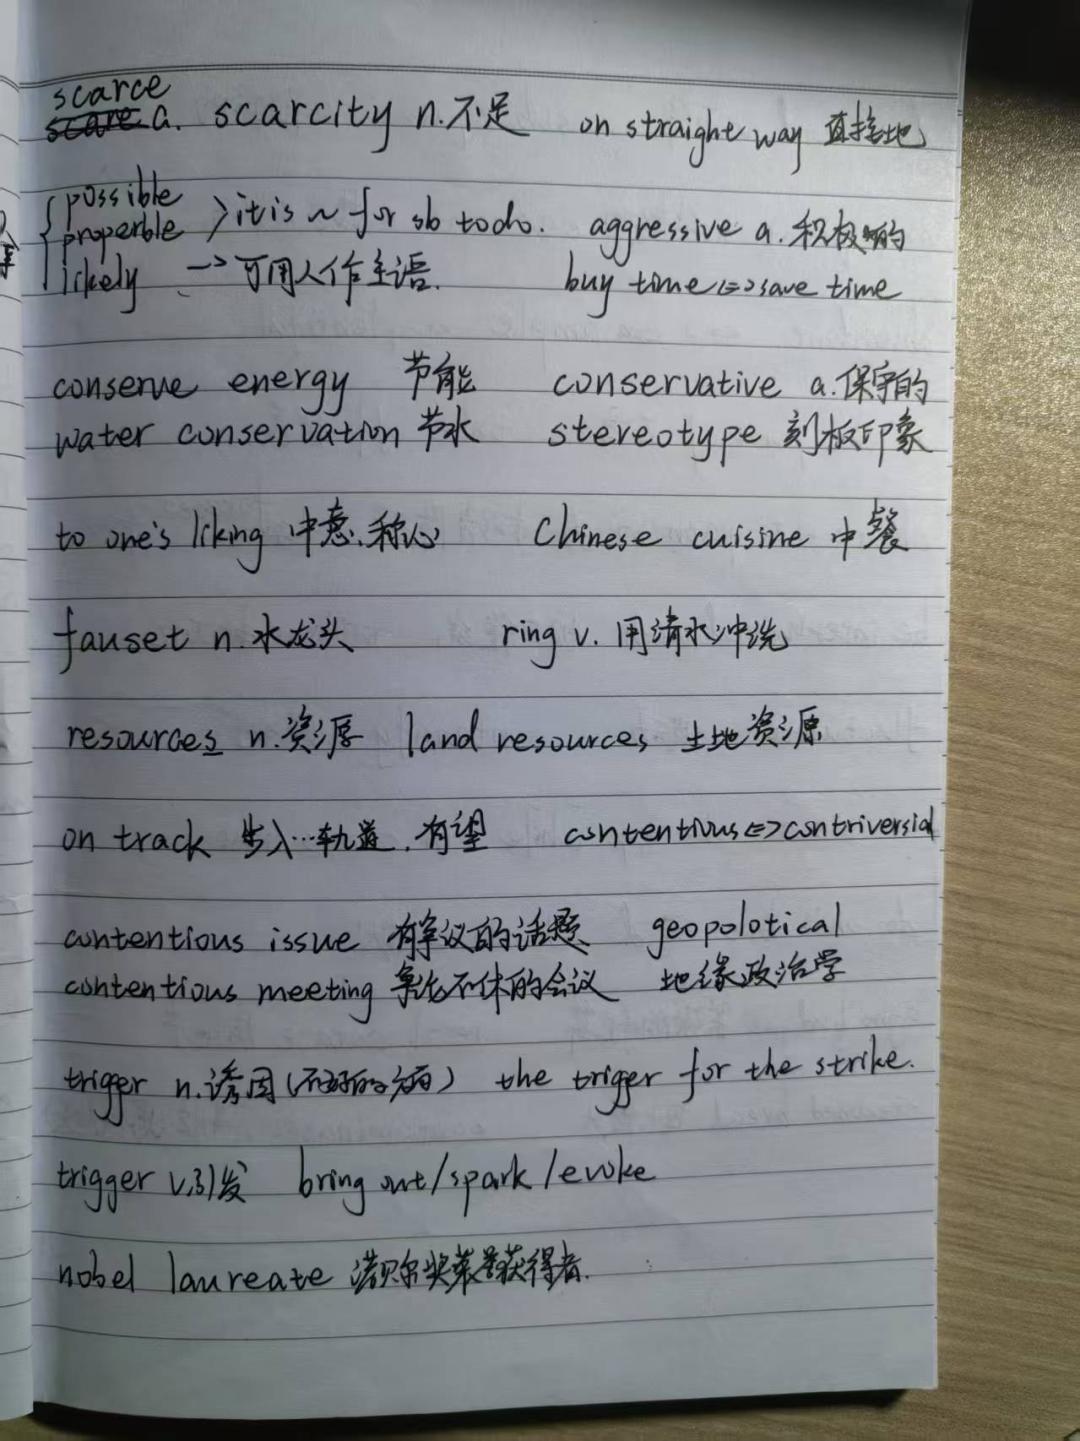 scarce
scare a. scarcity n.不足 on straight way 直接地
possible
properble >it is ~ for sb to do. aggressive a.积极的
likely → 可用人作主语. buy time⇔save time
conserve energy 节能 conservative a.保守的
water conservation 节水 stereotype 刻板印象
to one's liking 中意、称心 Chinese cuisine 中餐
fauset n.水龙头 ring v. 用清水冲洗
resources n.资源 land resources 土地资源
on track 步入…轨道,有望 contentious⇔contriversial
contentious issue 有争议的话题 geopolotical
contentious meeting 争论不休的会议 地缘政治学
trigger n.诱因(不好的方面) the trigger for the strike.
trigger v.引发 bring out/spark/evoke
nobel laureate 诺贝尔奖荣誉获得者.